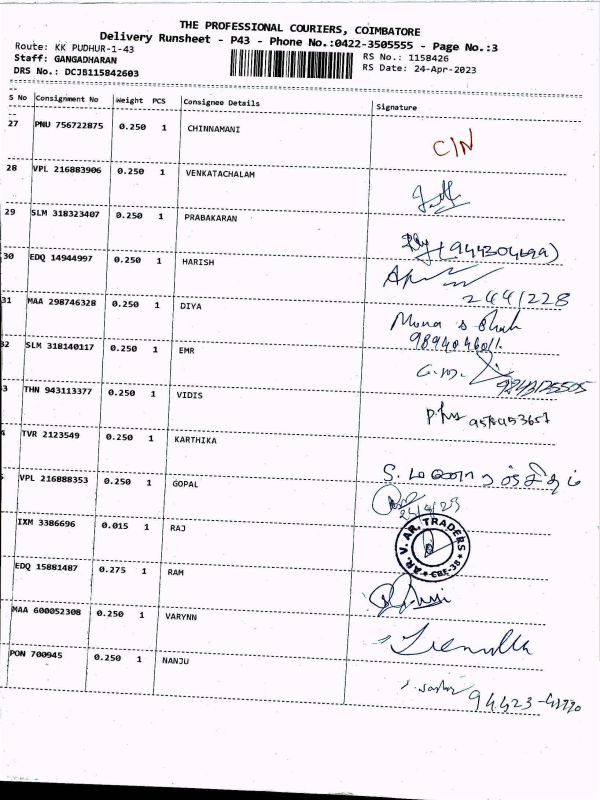 THE PROFESSIONAL COURIERS, COIMBATORE
Delivery Runsheet - P43 - Phone No.:0422-3505555 - Page No.:3
Route: KK PUDHUR-1-43
RS No.: 1158426
Staff: GANGADHARAN
RS Date: 24-Apr-2023
DRS No.: DCJB115842603
S No Consignment No Weight PCS Consignee Details Signature
27 PNU 756722875 0.250 1 CHINNAMANI
C/N
28 VPL 216883906 0.250 1 VENKATACHALAM
29 SLM 318323407 0.250 1 PRABAKARAN
30 EDQ 14944997 0.250 1 HARISH
244/228
31 MAA 298746328 0.250 1 DIYA
Mona s Shah
32 SLM 318140117 0.250 1 EMR
G.M.
3 THN 943113377 0.250 1 VIDIS
4 TVR 2123549 0.250 1 KARTHIKA
5 VPL 216888353 0.250 1 GOPAL
24/4/23
IXM 3386696 0.015 1 RAJ
AR. V. AR. TRADERS
★ CBE-38 ★
EDQ 15881487 0.275 1 RAM
MAA 600052308 0.250 1 VARYNN
PON 700945 0.250 1 NANJU